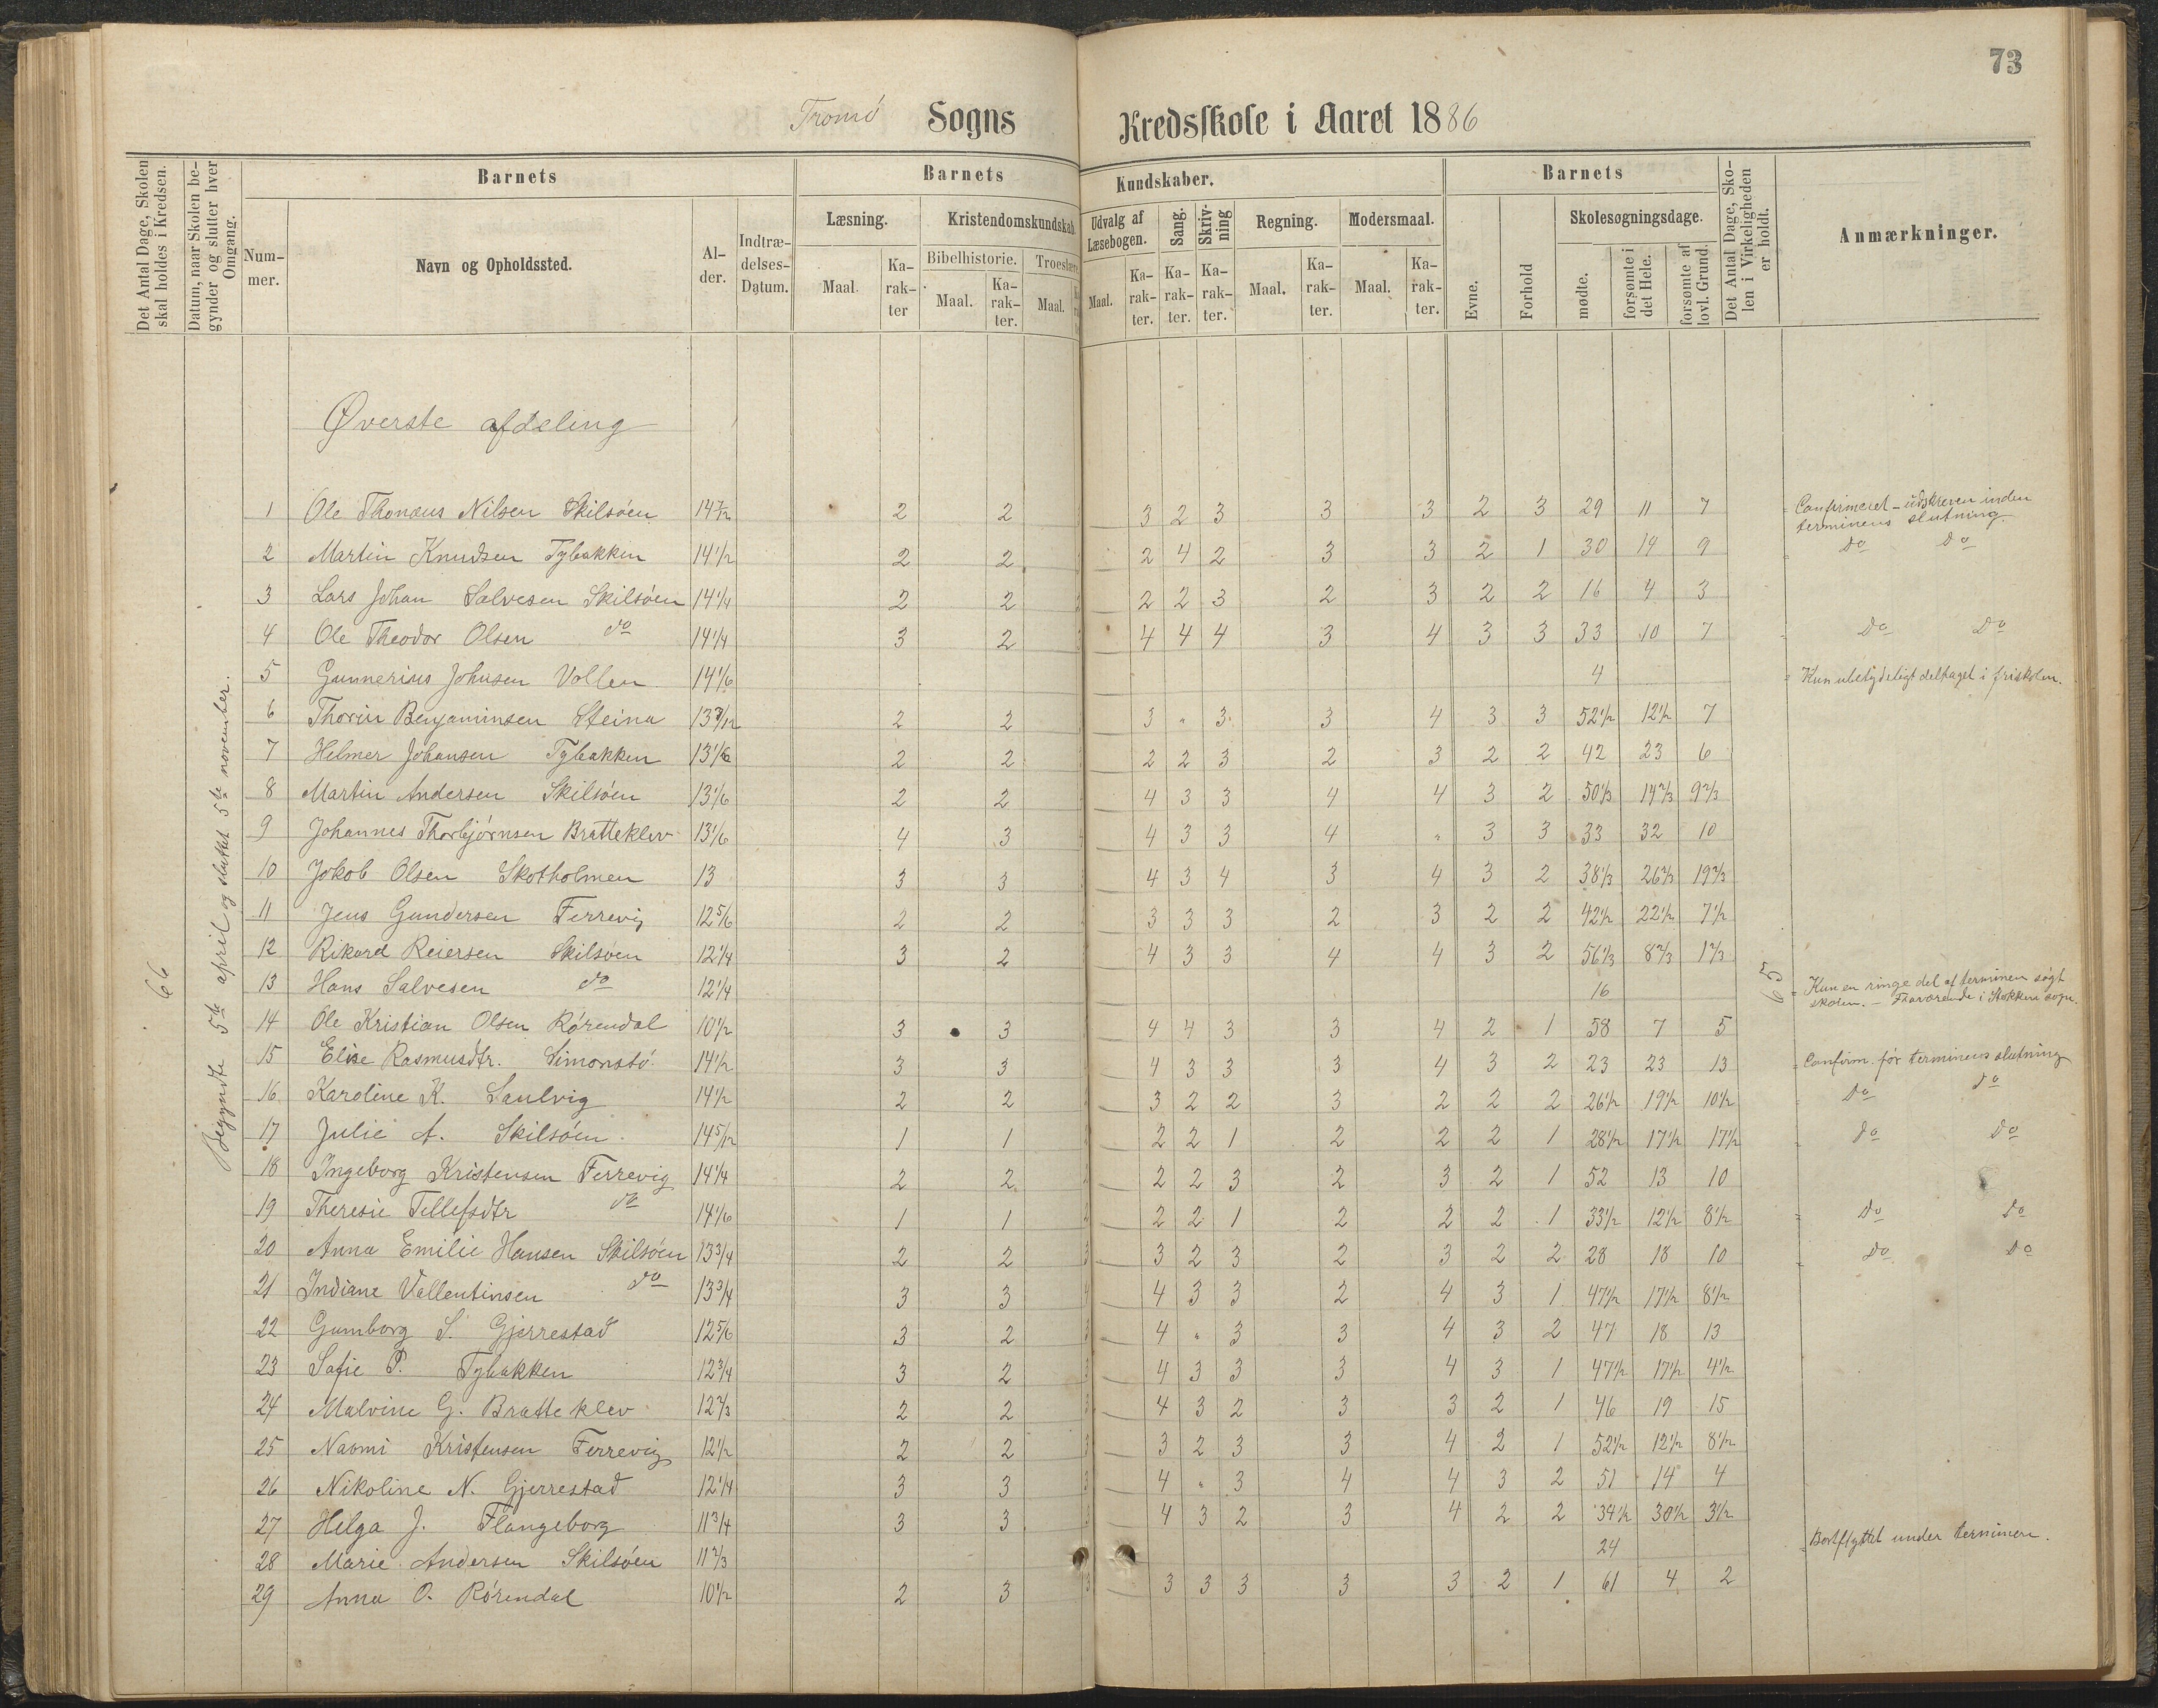 73
Tromø Sogns Kredsskole i Aaret 1886
Det Antal Dage, Skolen skal holdes i Kredsen.
Datum, naar Skolen begynder og slutter hver Omgang.
Barnets
Nummer.
Navn og Opholdssted.
Alder.
Indtrædelses-Datum.
Barnets Kundskaber.
Læsning.
Maal. Karakter
Kristendomskundskab
Bibelhistorie.
Maal. Karakter.
Troeslære
Maal.
Udvalg af Læsebogen.
Maal. Karakter.
Sang.
Karakter.
Skrivning
Karakter.
Regning.
Maal. Karakter.
Modersmaal.
Maal. Karakter.
Barnets
Evne.
Forhold
Skolesøgningsdage.
mødte.
forsømte i det Hele.
forsømte af lovl. Grund.
Det Antal Dage, Skolen i Virkeligheden er holdt.
Anmærkninger.
66
Begyndte 5te april og sluttet 5te november.
65
Øverste afdeling
1 Ole Thomæus Nilsen Skilsøen 14 7/12 2 2 3 2 3 3 3 2 3 29 11 7 Confirmeret - udskreven inden terminens slutning.
2 Martin Knudsen Tybakken 14 1/2 2 2 2 4 2 3 3 2 1 30 14 9 do do
3 Lars Johan Salvesen Skilsøen 14 1/4 2 2 2 2 3 2 3 2 2 16 4 3
4 Ole Theodor Olsen do 14 1/4 3 2 4 4 4 3 4 3 3 33 10 7 do do
5 Gunnerius Johnsen Vollen 14 1/6 4 Kun ubetydeligt deltaget i friskolen.
6 Thorin Benjaminsen Steina 13 7/12 2 2 3 " 3 3 4 3 3 52 1/2 12 1/2 7
7 Helmer Johansen Tybakken 13 1/6 2 2 2 2 3 2 3 2 2 42 23 6
8 Martin Andersen Skilsøen 13 1/6 2 2 4 3 3 4 4 3 2 50 1/3 14 2/3 9 2/3
9 Johannes Thorbjørnsen Bratteklev 13 1/6 4 3 4 3 3 4 " 3 3 33 32 10
10 Jokob Olsen Skotholmen 13 3 3 4 3 4 3 4 3 2 38 1/3 26 2/3 19 2/3
11 Jens Gundersen Ferrevig 12 5/6 2 2 3 3 3 2 3 2 2 42 1/2 22 1/2 7 1/2
12 Rikard Reiersen Skilsøen 12 1/4 3 2 4 3 3 4 4 3 2 56 1/3 8 2/3 1 2/3
13 Hans Salvesen do 12 1/4 16 Kun en ringe del af terminen søgt skolen. - Fraværende i Stokken sogn.
14 Ole Kristian Olsen Rørendal 10 1/2 3 3 4 4 3 3 4 2 1 58 7 5
15 Elise Rasmusdtr. Simonstø 14 1/2 3 3 4 3 3 3 4 3 2 23 23 13 Confirm. før terminens slutning
16 Karoline K. Saulvig 14 1/2 2 2 3 2 2 3 2 2 2 26 1/2 19 1/2 10 1/2 do do
17 Julie A. Skilsøen 14 5/12 1 1 2 2 1 2 2 2 1 28 1/2 17 1/2 17 1/2 do do
18 Ingeborg Kristensen Ferrevig 14 1/4 2 2 2 2 3 2 3 2 1 52 13 10
19 Theresie Tellefsdtr do 14 1/6 1 1 2 2 1 2 2 2 1 33 1/2 12 1/2 8 1/2 do do
20 Anna Emilie Hansen Skilsøen 13 3/4 2 2 3 3 2 3 2 3 2 2 28 18 10 do do
21 Indiane Vallentinsen do 13 3/4 3 3 4 4 3 3 2 4 3 1 47 1/2 17 1/2 8 1/2
22 Gumborg S. Gjerrestad 12 5/6 3 2 3 4 " 3 3 4 3 2 47 18 13
23 Sofie P. Tybakken 12 3/4 3 2 3 4 3 3 3 4 3 1 47 1/2 17 1/2 4 1/2
24 Malvine G. Bratteklev 12 2/3 2 2 3 4 3 2 3 3 2 1 46 19 15
25 Naomi Kristensen Ferrevig 12 1/2 2 2 3 3 2 3 3 4 2 1 52 1/2 12 1/2 8 1/2
26 Nikoline N. Gjerrestad 12 1/4 3 3 3 4 " 3 4 4 3 2 51 14 4
27 Helga J. Flangeborg 11 3/4 3 3 3 4 3 2 3 4 2 2 34 1/2 30 1/2 3 1/2
28 Marie Andersen Skilsøen 11 2/3 24 Bortflyttet under terminen.
29 Anna O. Rørendal 10 1/2 2 3 3 3 3 3 3 3 2 1 61 4 2